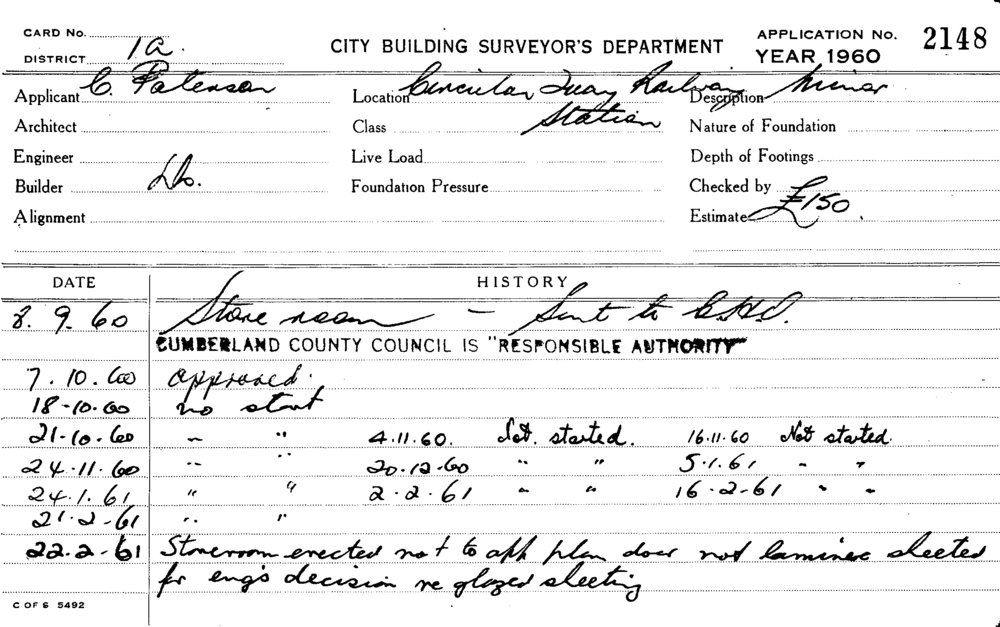 CARD No.
DISTRICT 1a.
CITY BUILDING SURVEYOR'S DEPARTMENT
APPLICATION No. 2148
YEAR 1960
Applicant C. Paterson Location Circular Quay Railway Description Minor
Architect Class Station Nature of Foundation
Engineer Live Load Depth of Footings
Builder Do. Foundation Pressure Checked by
Alignment Estimate £150.
DATE HISTORY
8. 9. 60 Store room – Sent to
CUMBERLAND COUNTY COUNCIL IS "RESPONSIBLE AUTHORITY"
7. 10. 60 approved.
18-10-60 no start
21-10-60 " " 4.11.60. Not. started. 16.11.60 Not started.
24.11.60 " " 20-12-60 " " 5.1.61 " "
24.1.61 " " 2.2.61 " " 16-2-61 " "
21.2-61 " "
22.2-61 Storeroom erected not to app plan door not sheeted
for eng's decision re glazed sheeting
C OF S 5492